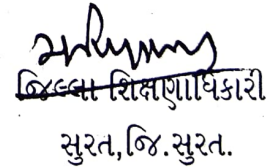 જિલ્લા શિક્ષણાધિકારી
સુરત,જિ.સુરત.